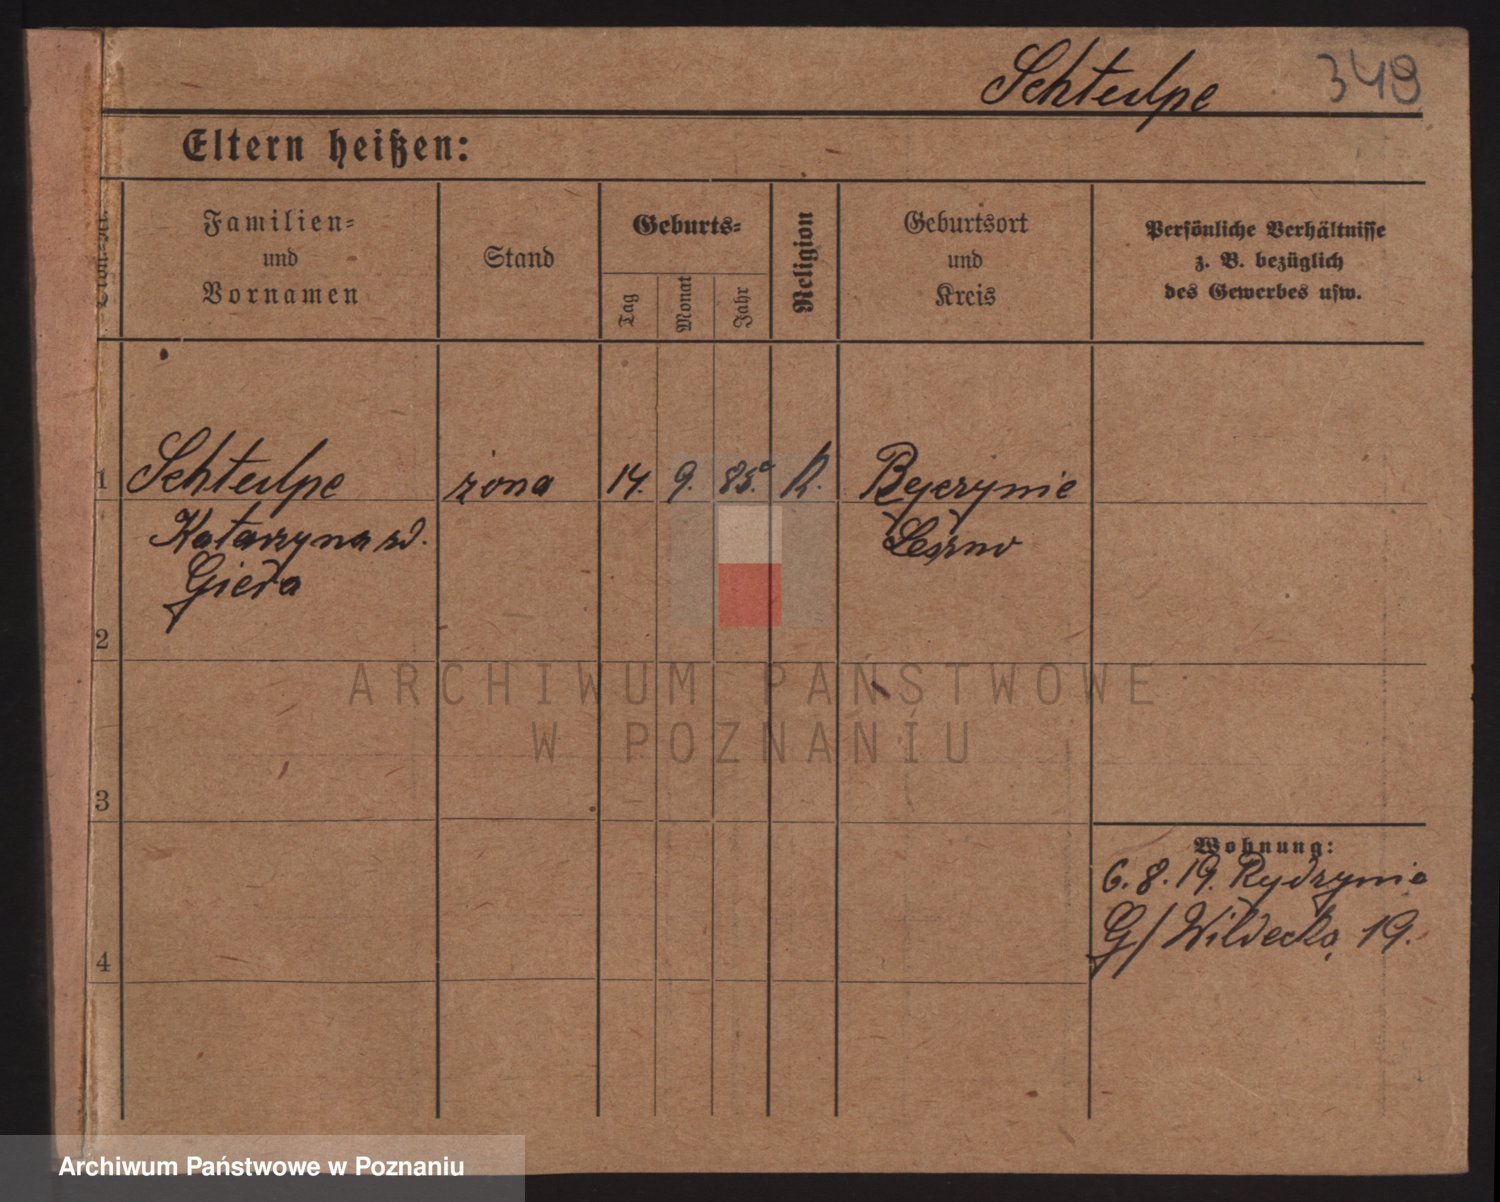 Schtulpe 349
Eltern heißen:
Familien=
und
Vornamen
Stand
Geburts=
Tag
Monat
Jahr
Religion
Geburtsort
und
Kreis
Persönliche Verhältnisse
z. B. bezüglich
des Gewerbes usw.
1 Schtulpe żona 14. 9. 85. K.
Katarzyna zd. Leszno
Giera
2
3
4
Wohnung:
6.8.19. Rydzynie
G/ Wildecka 19.
ARCHIWUM PAŃSTWOWE
W POZNANIU
Archiwum Państwowe w Poznaniu